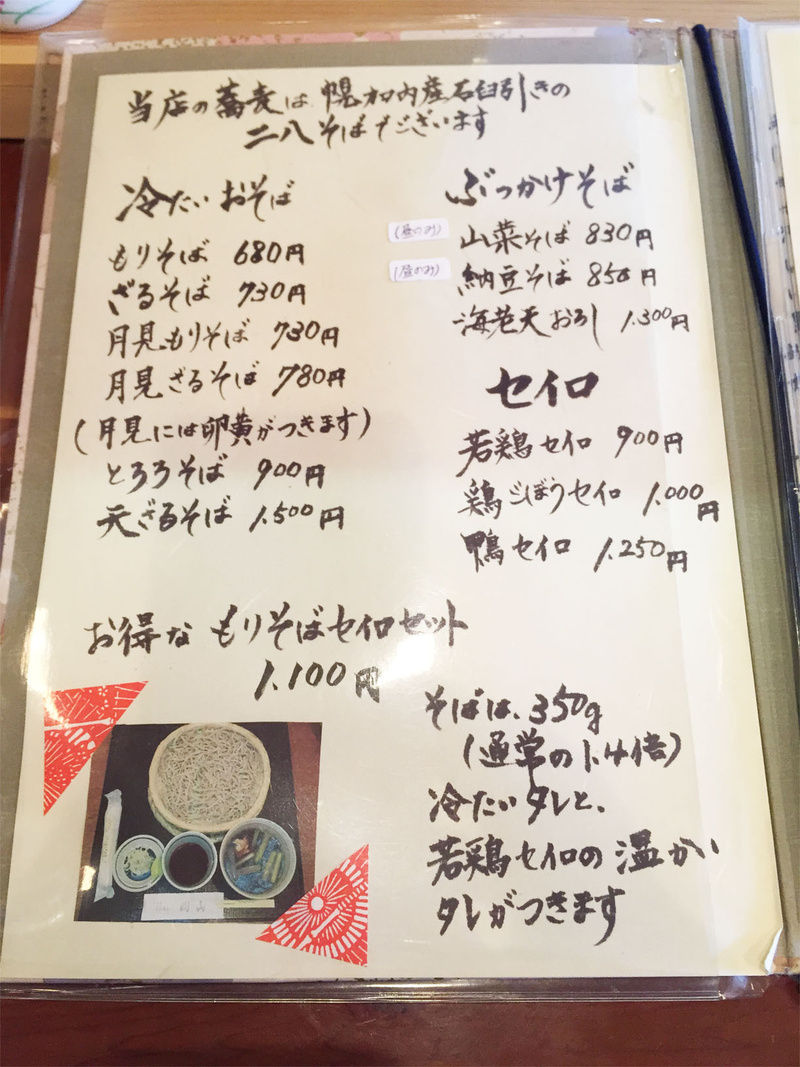 当店の蕎麦は、幌加内産石臼引きの
二八そばでございます
冷たいおそば
もりそば 680円
ざるそば 730円
月見もりそば 730円
月見ざるそば 780円
(月見には卵黄がつきます)
とろろそば 900円
天ざるそば 1.500円
ぶっかけそば
(昼のみ) 山菜そば 830円
(昼のみ) 納豆そば 850円
海老天おろし 1.300円
セイロ
若鶏セイロ 900円
鶏ごぼうセイロ 1.000円
鴨セイロ 1.250円
お得な もりそばセイロセット
1.100円
そばは、350g
(通常の1.4倍)
冷たいタレと、
若鶏セイロの温かい
タレがつきます